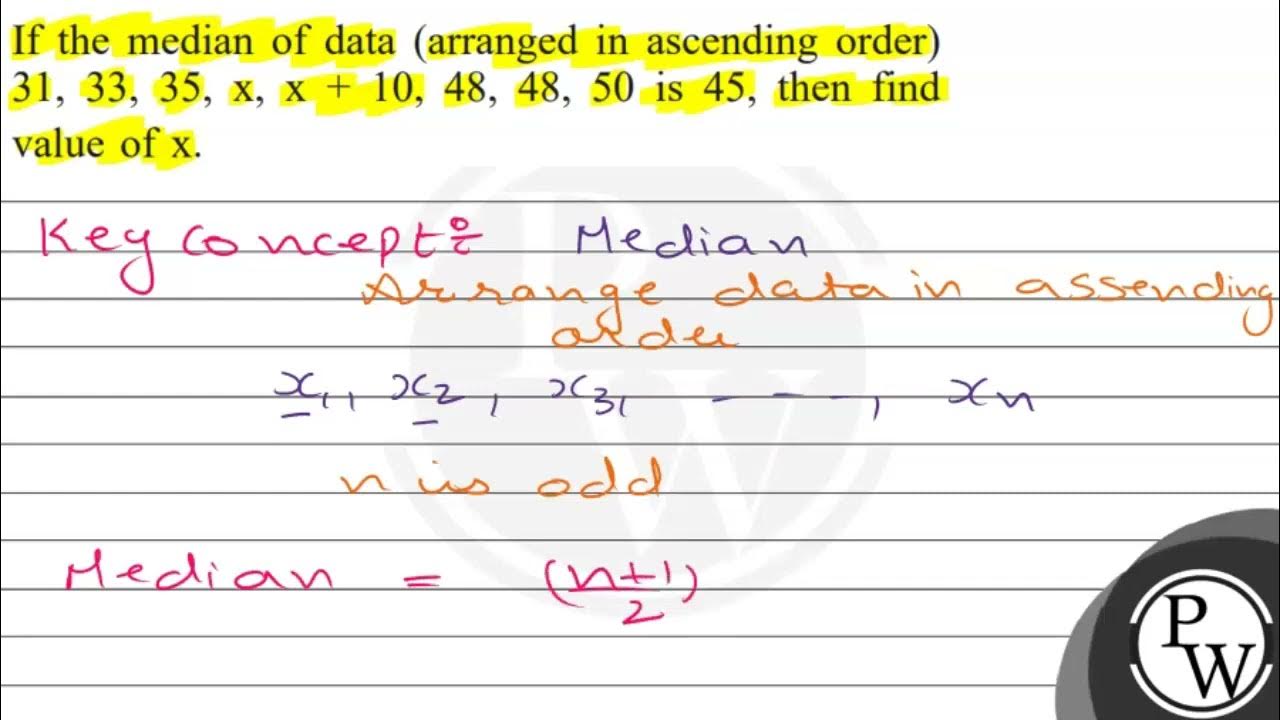 If the median of data (arranged in ascending order)
31, 33, 35, x, x + 10, 48, 48, 50 is 45, then find
value of x.
Key concept: Median
Arrange data in assending
order
x₁, x₂, x₃, - - -, xₙ
n is odd
Median = (n+1/2)
PW
PW